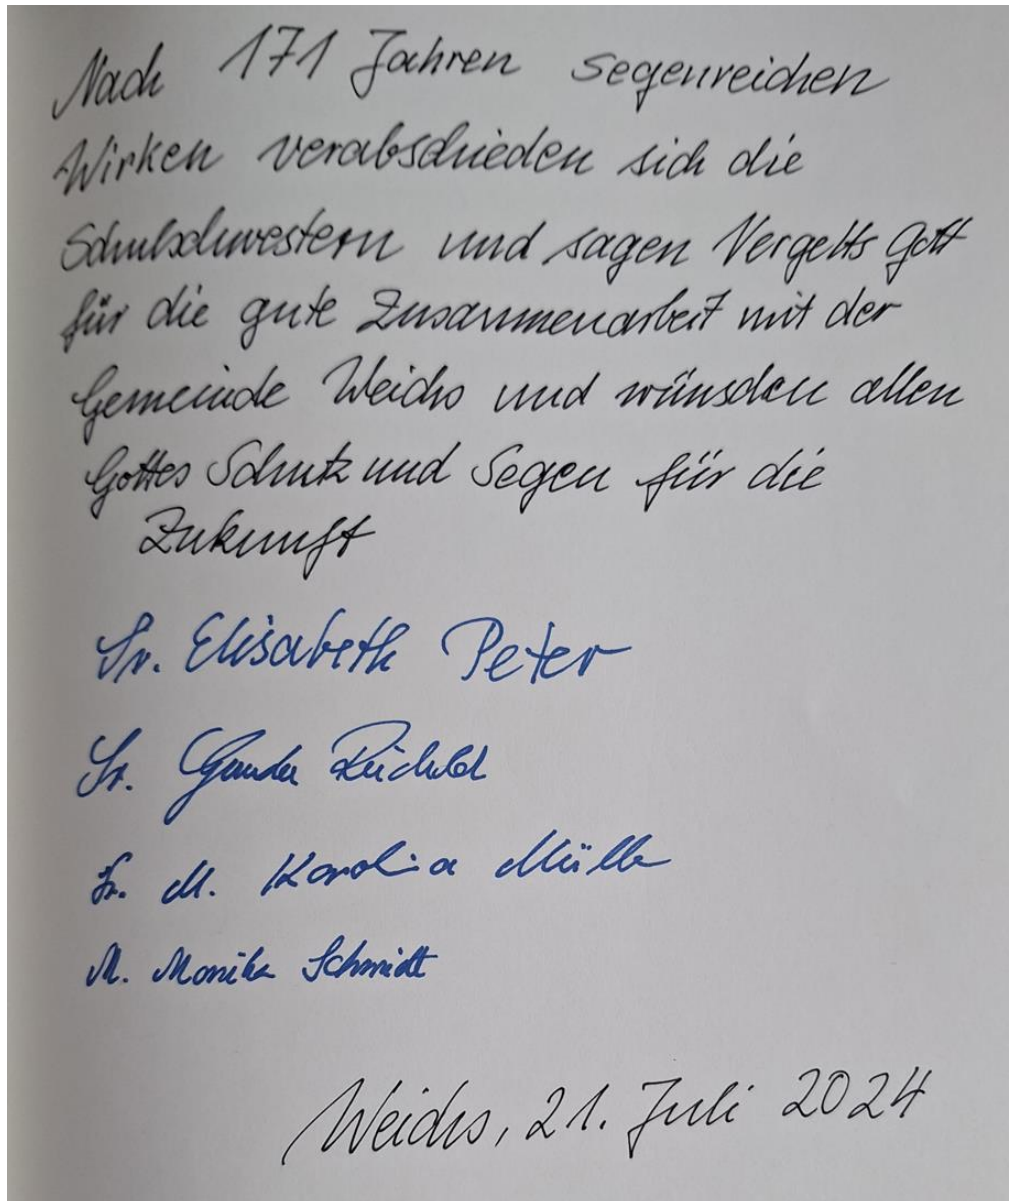 Nach 171 Jahren segensreichen
Wirken verabschieden sich die
Schulschwestern und sagen Vergelts Gott
für die gute Zusammenarbeit mit der
Gemeinde Weichs und wünschen allen
Gottes Schutz und Segen für die
Zukunft
Sr. Elisabeth Peter
Sr.
Sr. M. Karolina Müller
M. Monika Schmidt
Weichs, 21. Juli 2024